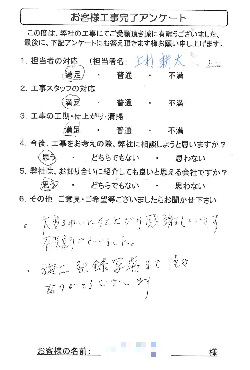 お客様工事完了アンケート
この度は、弊社の工事にてご愛顧頂き誠に有難うございました。
最後に、下記アンケートにもお答え頂けます様お願い申し上げます。
1. 担当者の対応 (担当者名:
満足 ・ 普通 ・ 不満
2. 工事スタッフの対応
満足 ・ 普通 ・ 不満
3. 工事の工期・仕上がり・清掃
満足 ・ 普通 ・ 不満
4. 今後、工事をお考えの際、弊社に相談しようと思いますか?
思う ・ どちらでもない ・ 思わない
5. 弊社は、お知り合いに紹介しても良いと思える会社ですか?
思う ・ どちらでもない ・ 思わない
6. その他 ご意見・ご希望等ございましたらお聞かせ下さい
ました。
施工記録写真まで
ありがとうございます
お客様の名前: 様